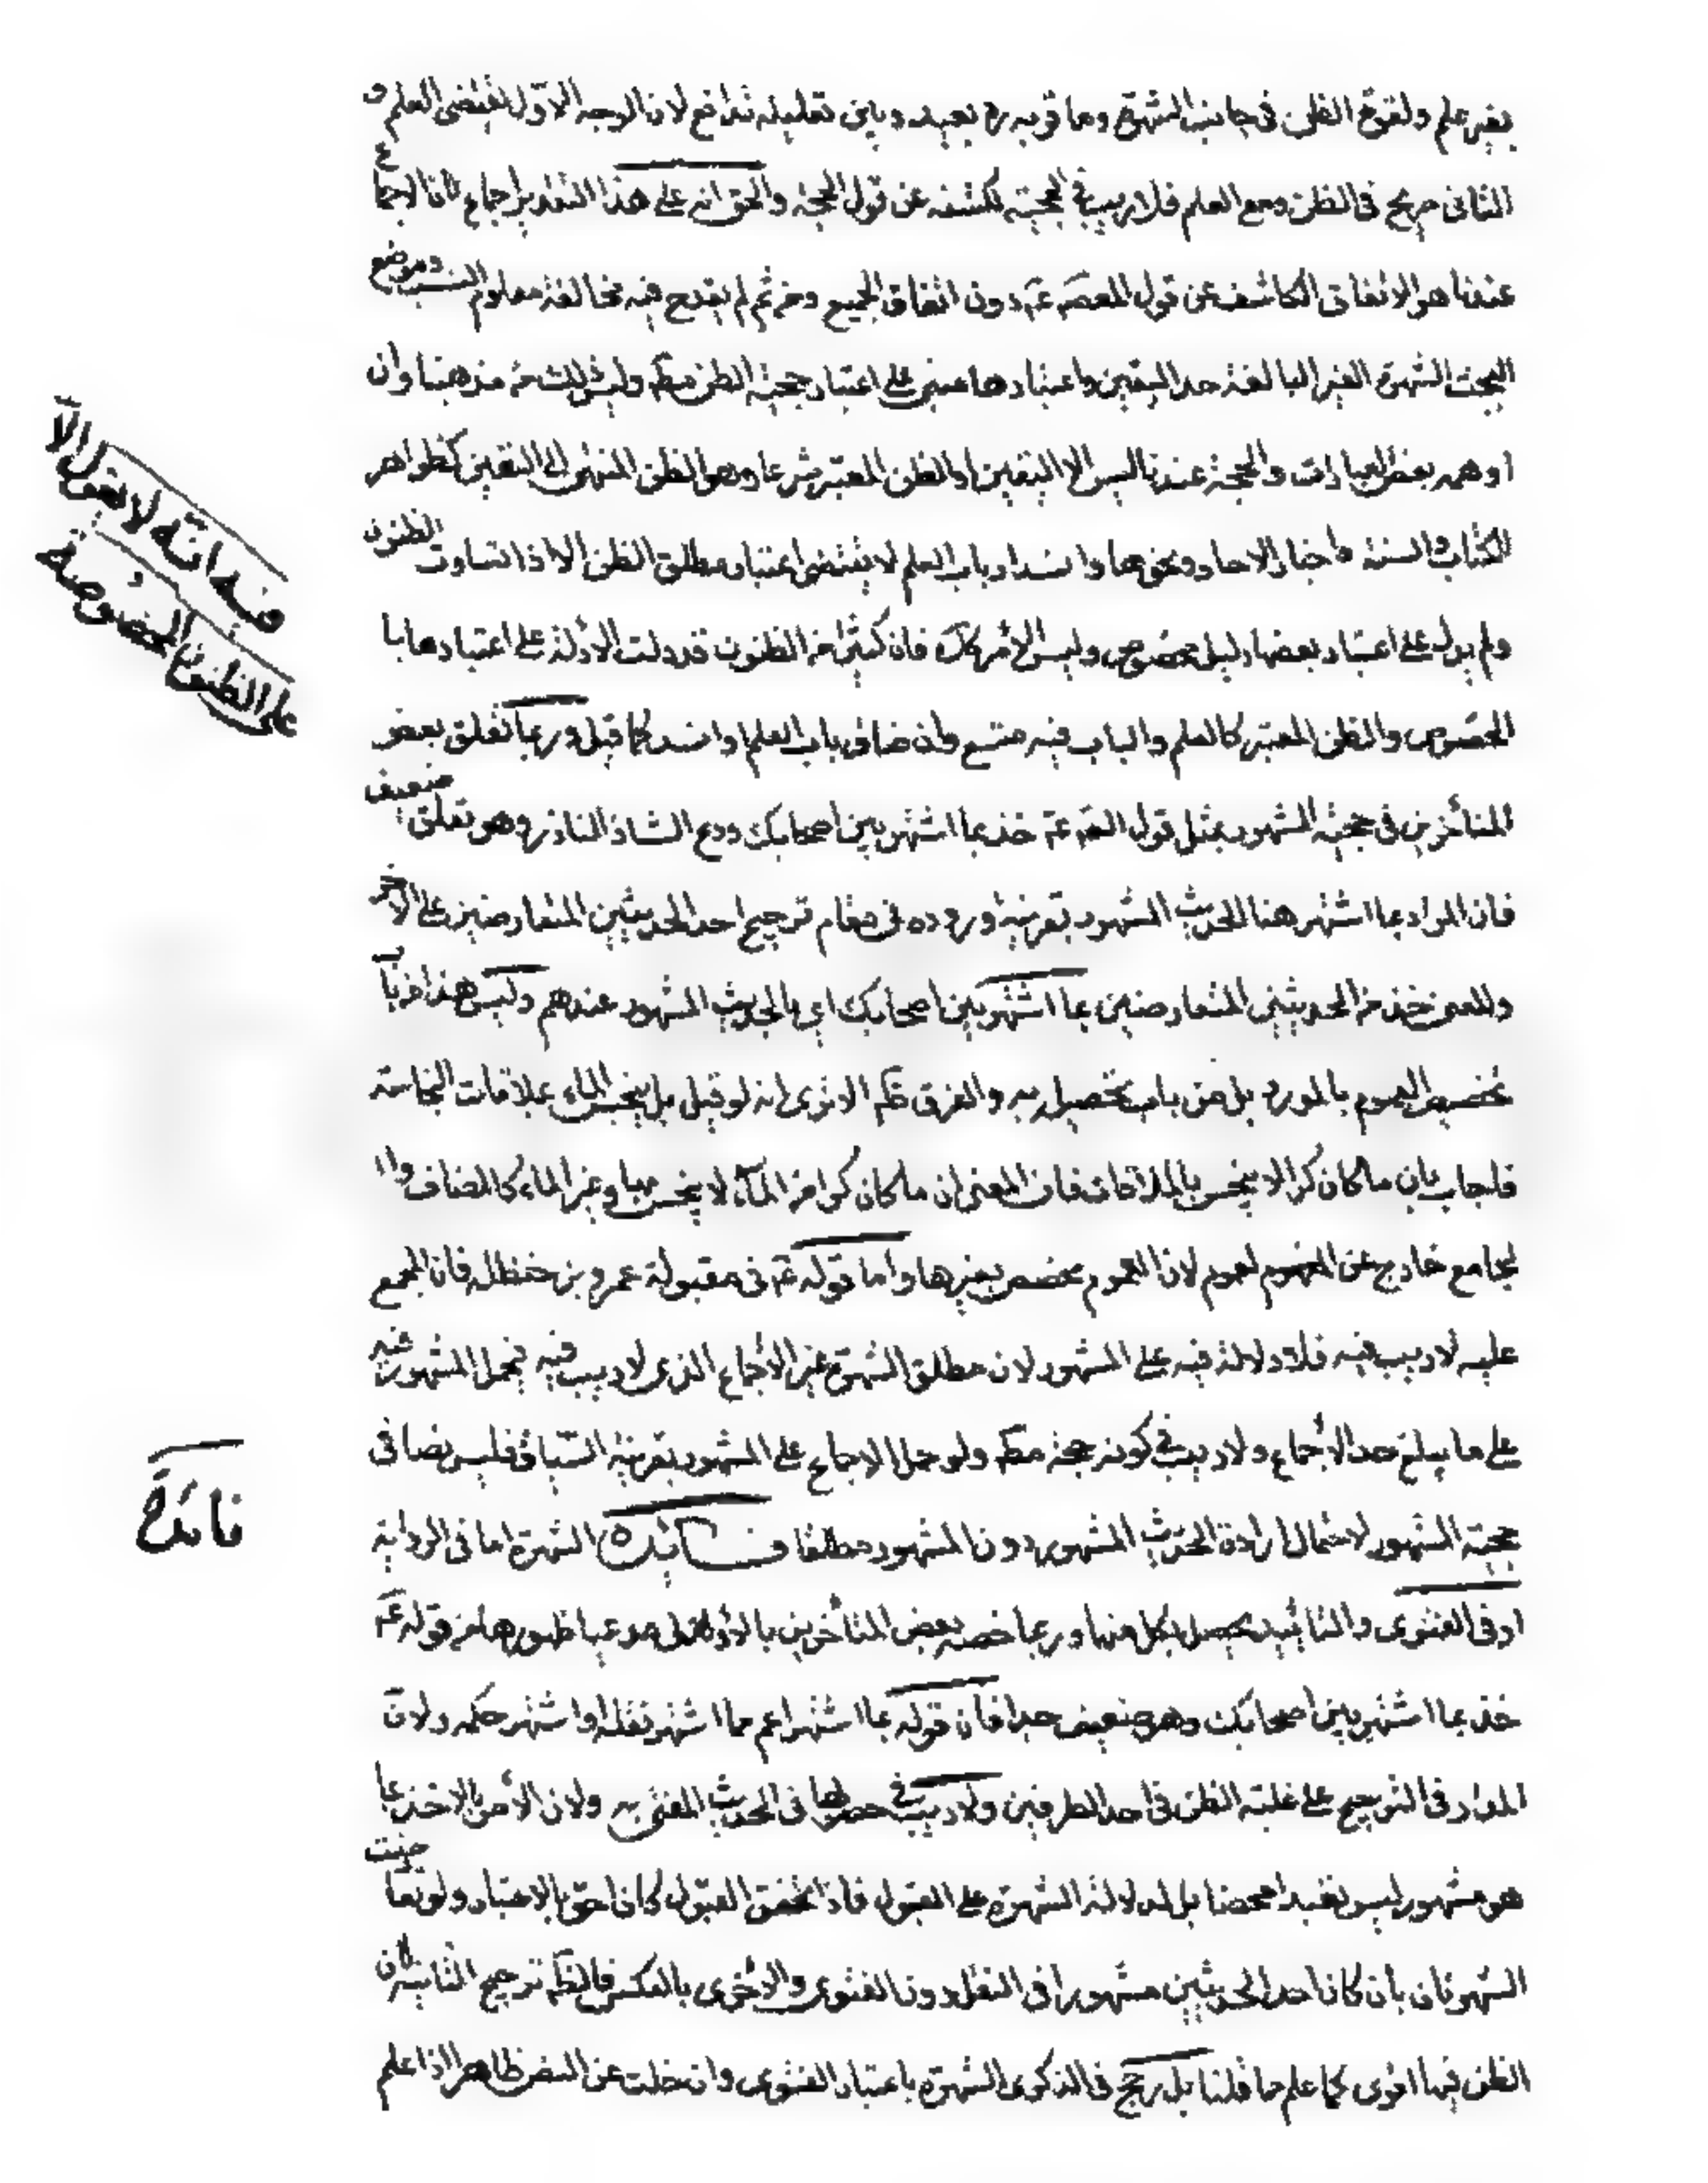 بغير علم ولقوة الظن في جانب الشهرة وما قربه ره بعيد وبين تعليليه تدافع لان الوجه الاول يقتضى العلم و
الثانى صريح في الظن ومع العلم فلا ريب في الحجية لكشفه عن قول الحجة والحق انه على هذا التقدير اجماع لان الاجماع
عندنا هو الاتفاق الكاشف عن قول المعصوم عم دون اتفاق الجميع ومن ثم لم يقدح فيه مخالفة معلوم النسب وموضع
البحث الشهرة الغير البالغة حد اليقين واعتبارها مبنى على اعتبار حجية الظن مط وليس ذلك من مذهبنا وان
اوهمه بعض العبارات والحجة عندنا ليس الا اليقين او الظن المعتبر شرعا وهو الظن المنتهى الى اليقين كظواهر
الكتاب والسنة واخبار الاحاد ونحوها وانسداد باب العلم لا يقتضى اعتبار مطلق الظن الا اذا تساوت الظنون
ولم يدل على اعتبار بعضها دليل مخصوص وليس الامر كك فان كثيرا من الظنون قد دلت الادلة على اعتبارها با
الخصوص والظن المعتبر كالعلم والباب فيه متسع وان ضاق باب العلم او انسد كما قيل وربما تعلق بعض
المتأخرين في حجية المشهور بمثل قول الصم عم خذ بما اشتهر بين اصحابك ودع الشاذ النادر وهو تعلق ضعيف
فان المراد بما اشتهر هنا الحديث المشهور بقرينة وروده في مقام ترجيح احد الحديثين المتعارضين على الاخر
والمعنى خذ من الحديثين المتعارضين بما اشتهر بين اصحابك اى بالحديث المشهور عندهم وليس هذا من باب
تخصيص العموم بالمورد بل من باب تخصيله به والفرق ظم الا ترى انه لو قيل هل ينجس الماء بملاقات النجاسة
فاجاب بان ما كان كرا لا ينجس بالملاقات فان المعنى ان ما كان كرا من الماء لا ينجس بها وغير الماء كالمضاف وا
لجامع خارج عن المفهوم لعموم لان العموم مخصص بغيرها واما قوله عم في مقبولة عمرو بن حنظله فان المجمع
عليه لا ريب فيه فلا دلالة فيه على المشهور لان مطلق الشهرة غير الاجماع الذى لا ريب فيه فيحمل المشهور فيه
على ما يبلغ حد الاجماع ولا ريب في كونه حجة مط ولو حمل الاجماع على المشهور بقرينة السياق فليس نصا في
حجية المشهور لاحتمال ارادة الحديث المشهور دون المشهور مطلقا فـــائدة الشهرة اما في الرواية
او في الفتوى والتأييد يحصل بكل منها وربما خصه بعض المتأخرين بالاولى مدعيا ظهورها من قوله عم
خذ بما اشتهر بين اصحابك وهو ضعيف جدا فان قوله بما اشتهر اعم مما اشتهر نقله او اشتهر حكمه ولان
المدار في الترجيح على غلبة الظن في احد الطرفين ولا ريب في حصولها في الحديث المفتى به ولان الامر بالاخذ بما
هو مشهور ليس تعبدا محضا بل لدلالة الشهرة على القبول فاذا تحقق القبول كان احق بالاعتبار ولو تعارضت
الشهرتان بأن كان احد الحديثين مشهورا في النقل دون الفتوى والاخرى بالعكس فالظم ترجيح الثانية لان
الظن فيها اقوى كما علم مما قلنا بل رجح في الذكرى الشهرة باعتبار الفتوى وان خلت عن النص ظاهرا اذا علم
فيه انه لا يعول الا
على الظنون المخصوصة
فائدة